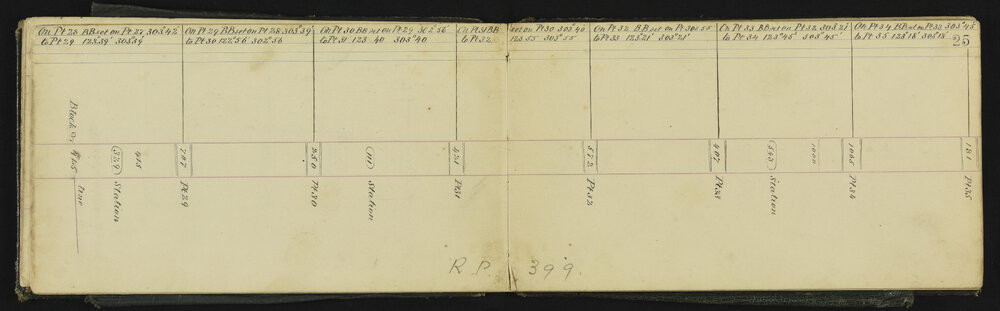 On Pt 28 BB set on Pt 27 303°42'
to Pt 29 123°39' 303°39'
On Pt 29 BB set on Pt 28 303°39'
to Pt 30 122°56' 302°56'
On Pt 30 BB set on Pt 29 302°56
to Pt 31 123 40 303°40
On Pt 31 BB set on Pt 30 303°40
to Pt 32 123 55 303°55
On Pt 32 BB set on Pt 303 55
to Pt 33 123°21' 303°21'
On Pt 33 BB set on Pt 32 303°21'
to Pt 34 123°45' 303°45'
On Pt 34 BB set on Pt 33 303°45
to Pt 35 123°18' 303°18'
25
Block
line
415
329 Station
707 Pt 29
250 Pt 30
111 Station
421 Pt 31
572 Pt 32
407
1000
563 Station
1065 Pt 34
181 Pt 35
R.P. 399.